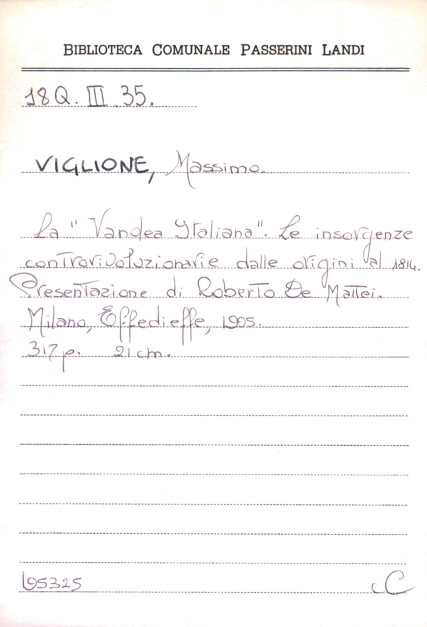 BIBLIOTECA COMUNALE PASSERINI LANDI
18Q. III 35.
VIGLIONE, Massimo.
La "Vandea Italiana". Le insorgenze
controrivoluzionarie dalle origini al 1814.
Presentazione di Roberto De Mattei.
Milano, Effedieffe, 1995.
317 p. 21 cm.
195325
C